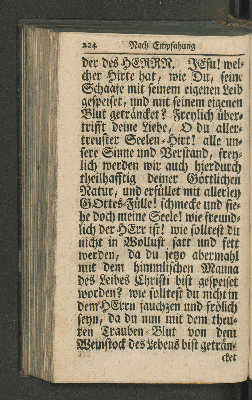 224 Nach Empfahung
der des HERRN. JEsu! wel-
cher Hirte hat, wie Du, seine
Schaafe mit seinem eigenen Leib
gespeiset, und mit seinem eigenen
Blut geträncket? Freylich über-
trifft deine Liebe, O du aller-
treuster Seelen-Hirt! alle un-
sere Sinne und Verstand, frey-
lich werden wir auch hierdurch
theilhafftig deiner Göttlichen
Natur, und erfüllet mit allerley
GOttes-Fülle! schmecke und sie-
he doch meine Seele! wie freund-
lich der HErr ist! wie solltest du
nicht in Wollust satt und fett
werden, da du jetzo abermahl
mit dem himmlischen Manna
des Leibes Christi bist gespeiset
worden? wie solltest du nicht in
dem HErrn jauchzen und frölich
seyn, da du nun mit dem theu-
ren Trauben-Blut von dem
Weinstock des Lebens bist geträn-
cket